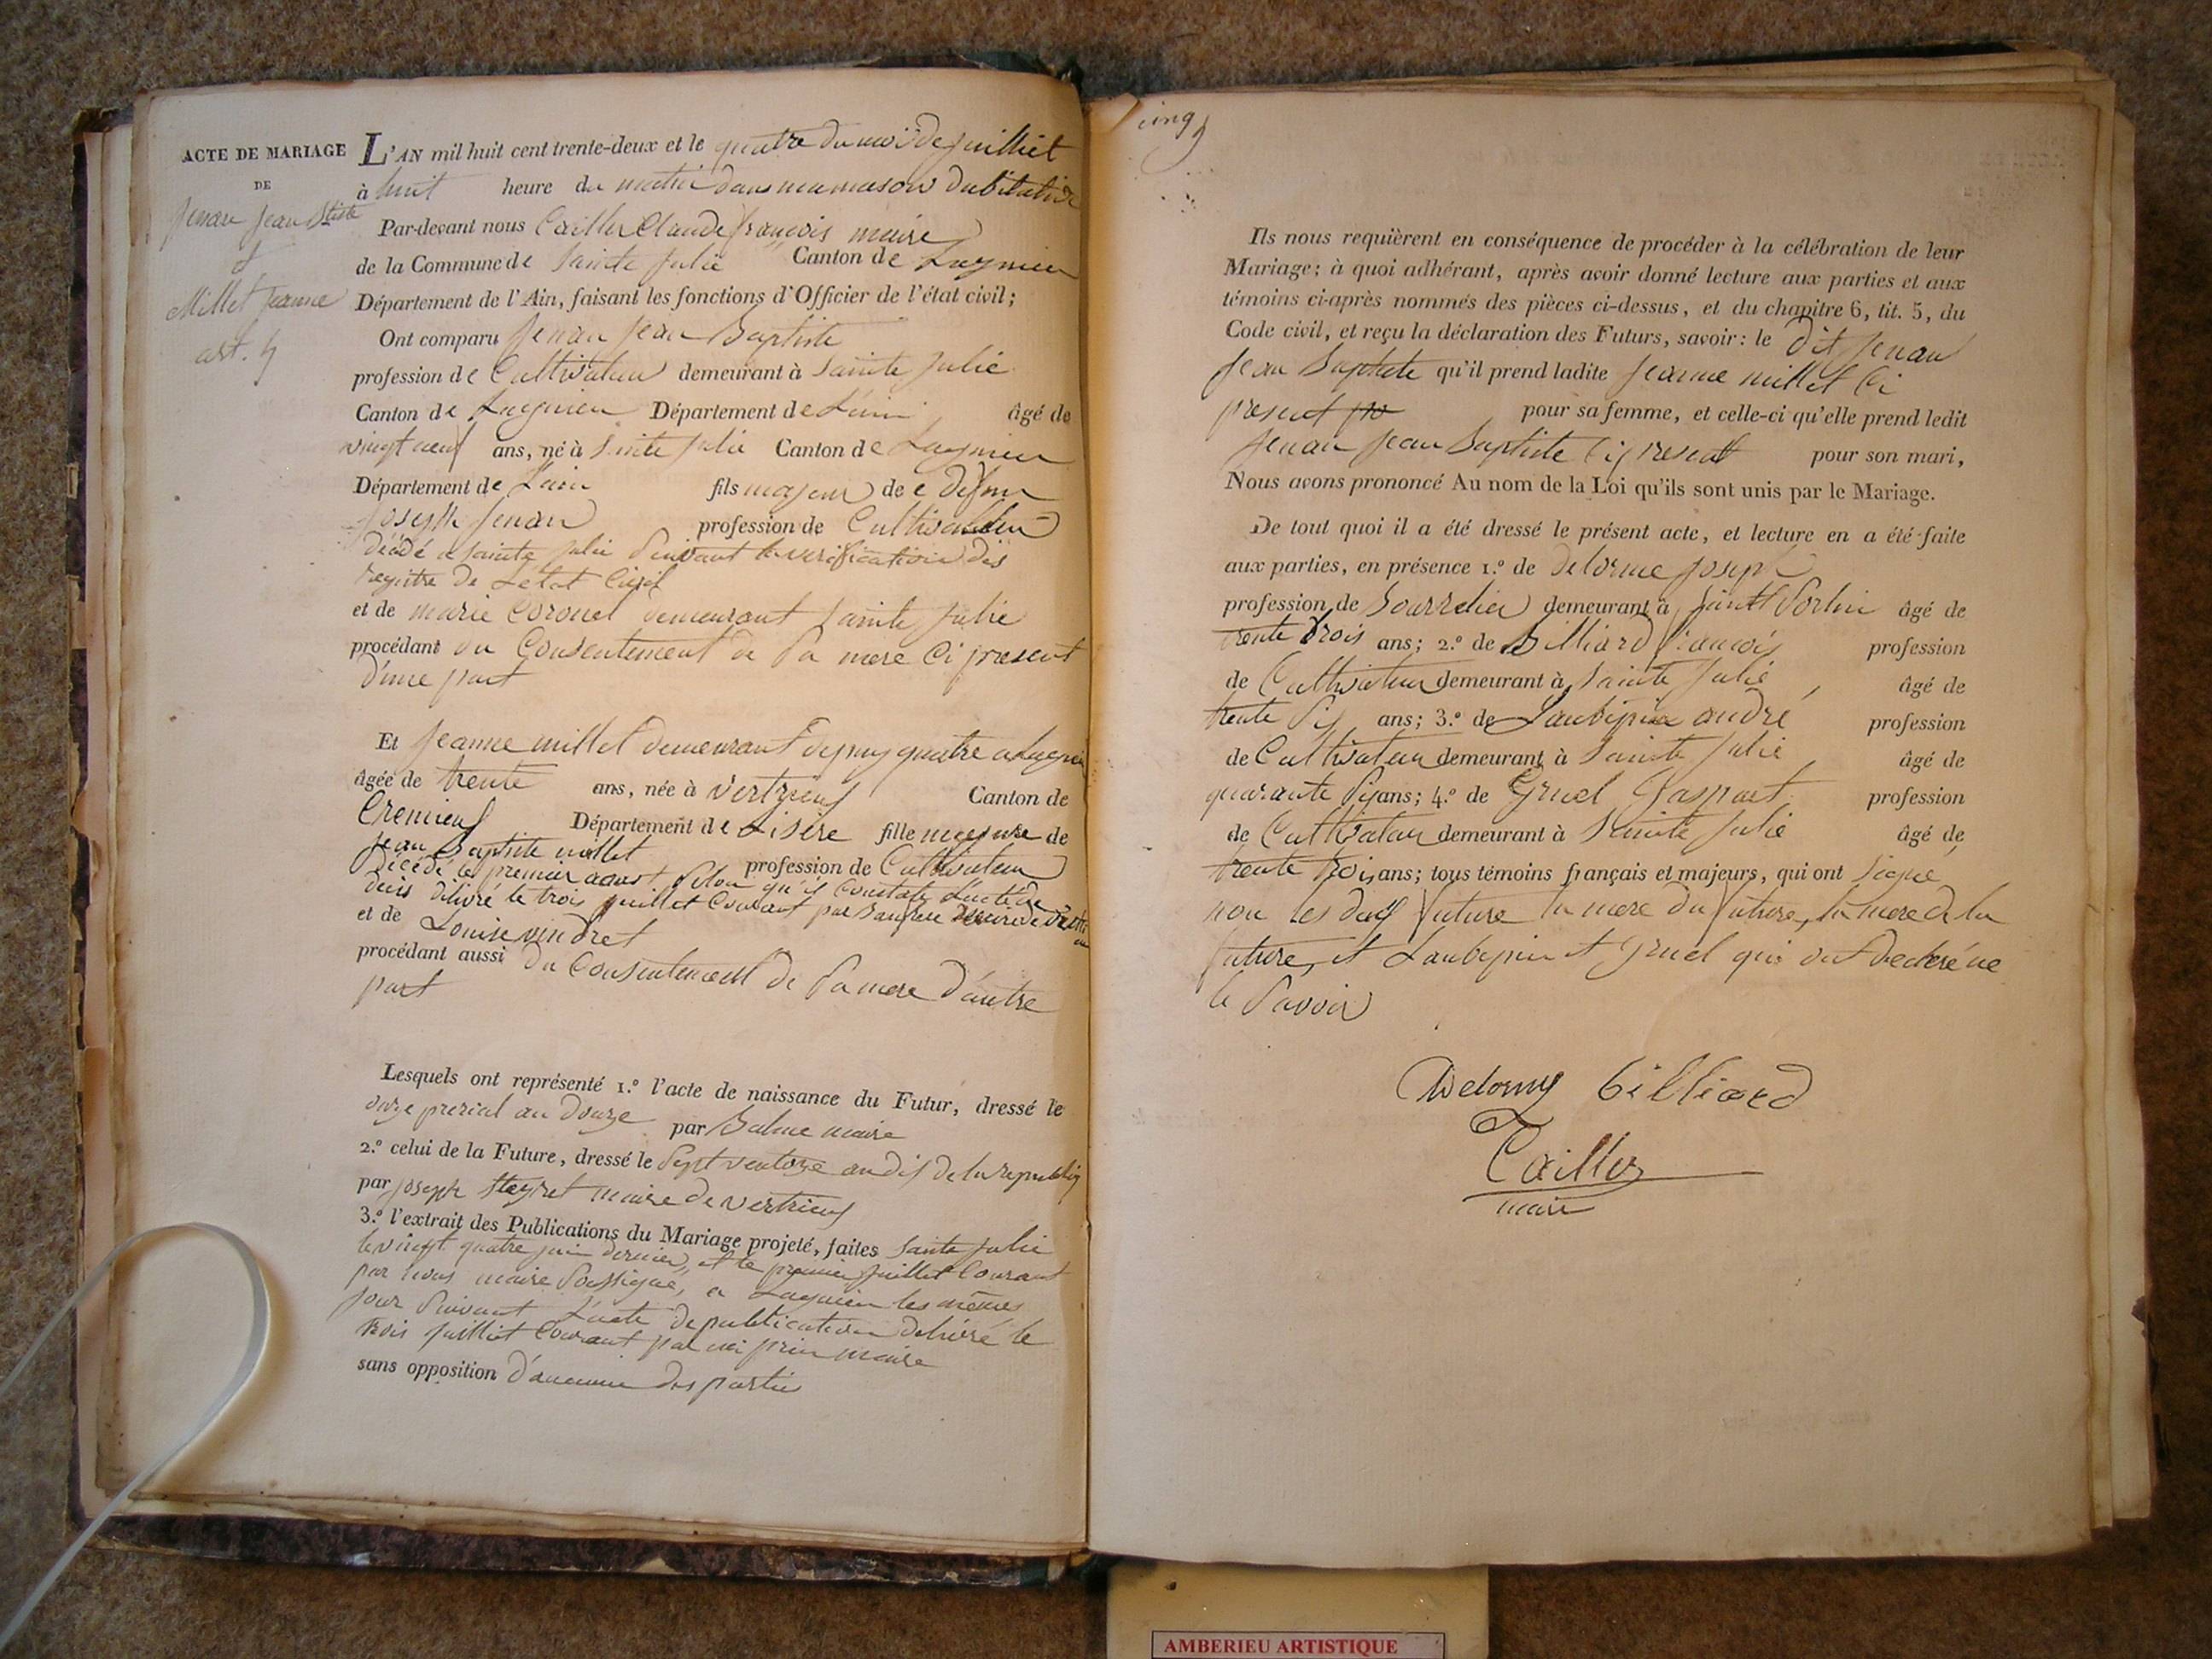 ACTE DE MARIAGE
DE
Jenan Jean Btiste
et
Millet Jeanne
art. 4
L'AN mil huit cent trente-deux et le quatre du mois de juilliet
à huit heure du matin dans ma maison dabitation
Par-devant nous Cailler Claude françois maire
de la Commune de Sainte Julie Canton de Lagnieu
Département de l'Ain, faisant les fonctions d'Officier de l'état civil;
Ont comparu Jenan Jean Baptiste
profession de Cultivateur demeurant à Sainte Julie
Canton de Lagnieu Département de L'ain âgé de
vingt neuf ans, né à Sainte Julie Canton de Lagnieu
Département de L'ain fils majeur de defun
Joseph Jenan profession de Cultivateur
décédé a Sainte Julie Suivant la verification des
registre de Letat Civil
et de marie Coronel demeurant Sainte Julie
procédant du Consentement de Sa mere Ci present
d'une part
Et Jeanne millet demeurant depuy quatre a Lagnieu
âgée de trente ans, née à Vertrieux Canton de
Cremieux Département de Lisére fille majeure de
Jean Baptiste millet profession de Cultivateur
Décédé le premier aoust Selon qu'il Constate L'acte de
décès délivré le trois juillet Courant par maire de
et de Louise vindret
procédant aussi du Consentement de Sa mere d'autre
part
Lesquels ont représenté 1.º l'acte de naissance du Futur, dressé le
onze prerial an Douze par Balme maire
2.º celui de la Future, dressé le Sept ventoze an dix de la republiq
par joseph maire de vertrieux
3.º l'extrait des Publications du Mariage projeté, faites Sainte Julie
le vingt quatre juin dernier, et le premier juillet Courant
par nous maire Soussigné, a Lagnieu les mêmes
jour Suivant L'acte de publication délivré le
trois juilliet Courant par maire
sans opposition d'aucune des partie
cinq
Ils nous requièrent en conséquence de procéder à la célébration de leur
Mariage; à quoi adhérant, après avoir donné lecture aux parties et aux
témoins ci-après nommés des pièces ci-dessus, et du chapitre 6, tit. 5, du
Code civil, et reçu la déclaration des Futurs, savoir: le dit Jenan
Jean Baptiste qu'il prend ladite Jeanne millet Ci
present pour sa femme, et celle-ci qu'elle prend ledit
Jenan Jean Baptiste Ci present pour son mari,
Nous avons prononcé Au nom de la Loi qu'ils sont unis par le Mariage.
De tout quoi il a été dressé le présent acte, et lecture en a été faite
aux parties, en présence 1.º de Delorme joseph
profession de Bourrelier demeurant à Saint Sorlin âgé de
trente trois ans; 2.º de Billiard francois profession
de Cultivateur demeurant à Sainte Julie, âgé de
trente Six ans; 3.º de Laubepin andré profession
de Cultivateur demeurant à Sainte Julie, âgé de
quarante Six ans; 4.º de Gruel Gaspart profession
de Cultivateur demeurant à Sainte Julie âgé de
trente trois ans; tous témoins français et majeurs, qui ont signé
non les deux future la mere du future, la mere de la
future, et Laubepin et Gruel qui ont declaré ne
le Savoir
Delorme billiard
Cailler
maire
AMBERIEU ARTISTIQUE